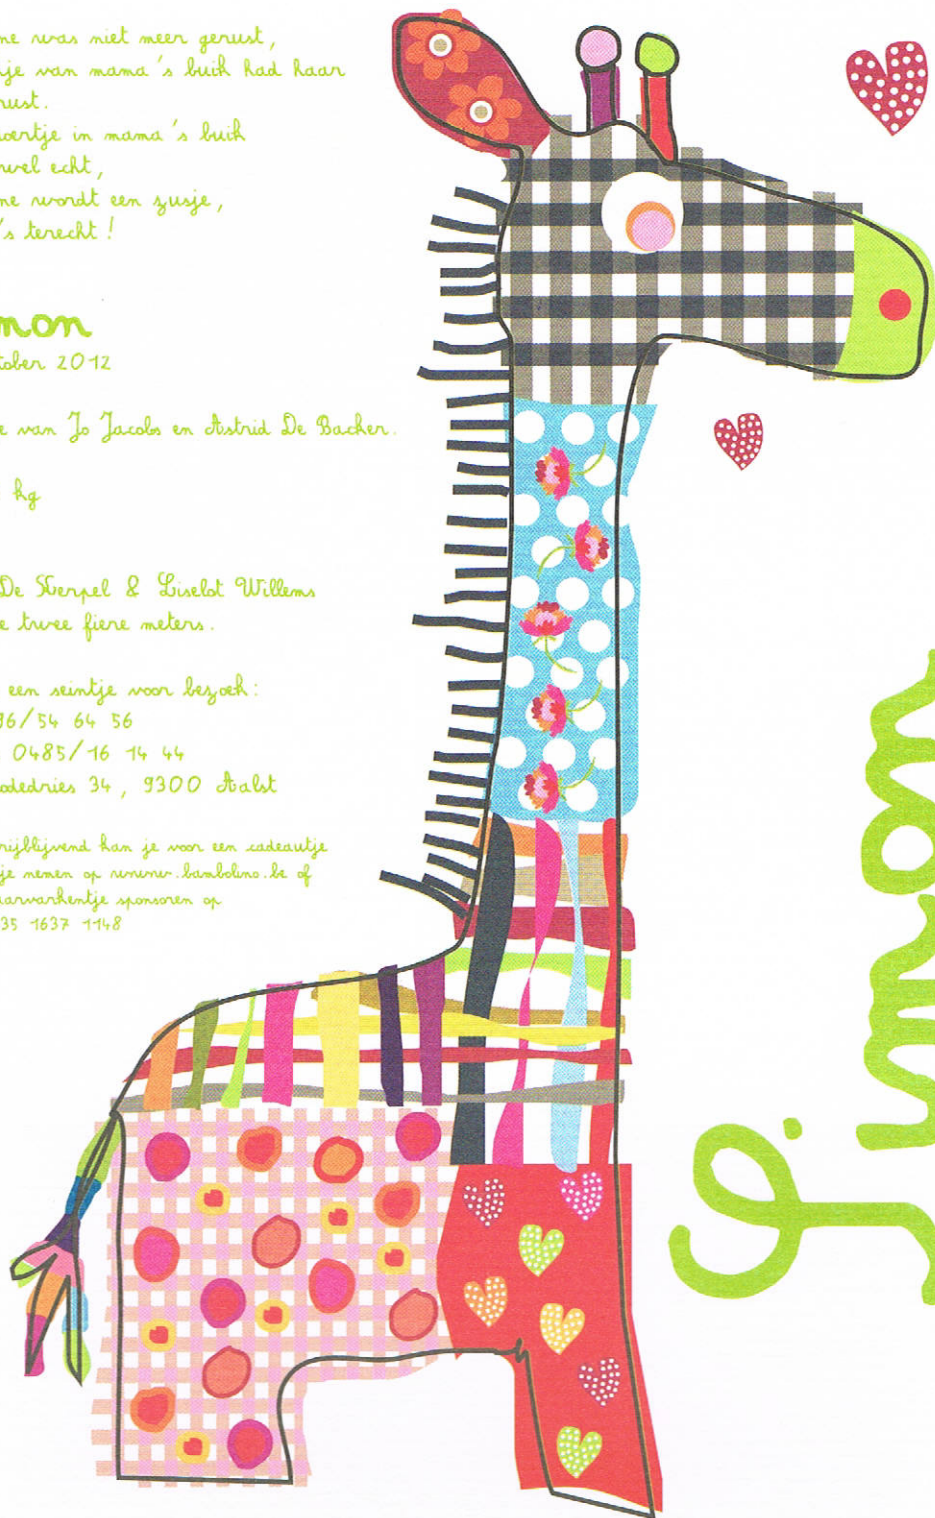 ne was niet meer gerust,
je van mama's buik had haar
rust.
oertje in mama's buik
wel echt,
ne wordt een zusje,
's terecht!
mon
tober 2012
e van Jo Jacobs en Astrid De Backer.
kg
De Sterpel & Liselot Willems
e twee fiere meters.
een seintje voor bezoek:
96/54 64 56
0485/16 14 44
odedries 34, 9300 Aalst
rijblijvend kan je voor een cadeautje
je nemen op www.bambolino.be of
aarvarkentje sponsoren op
35 1637 1148
Simon